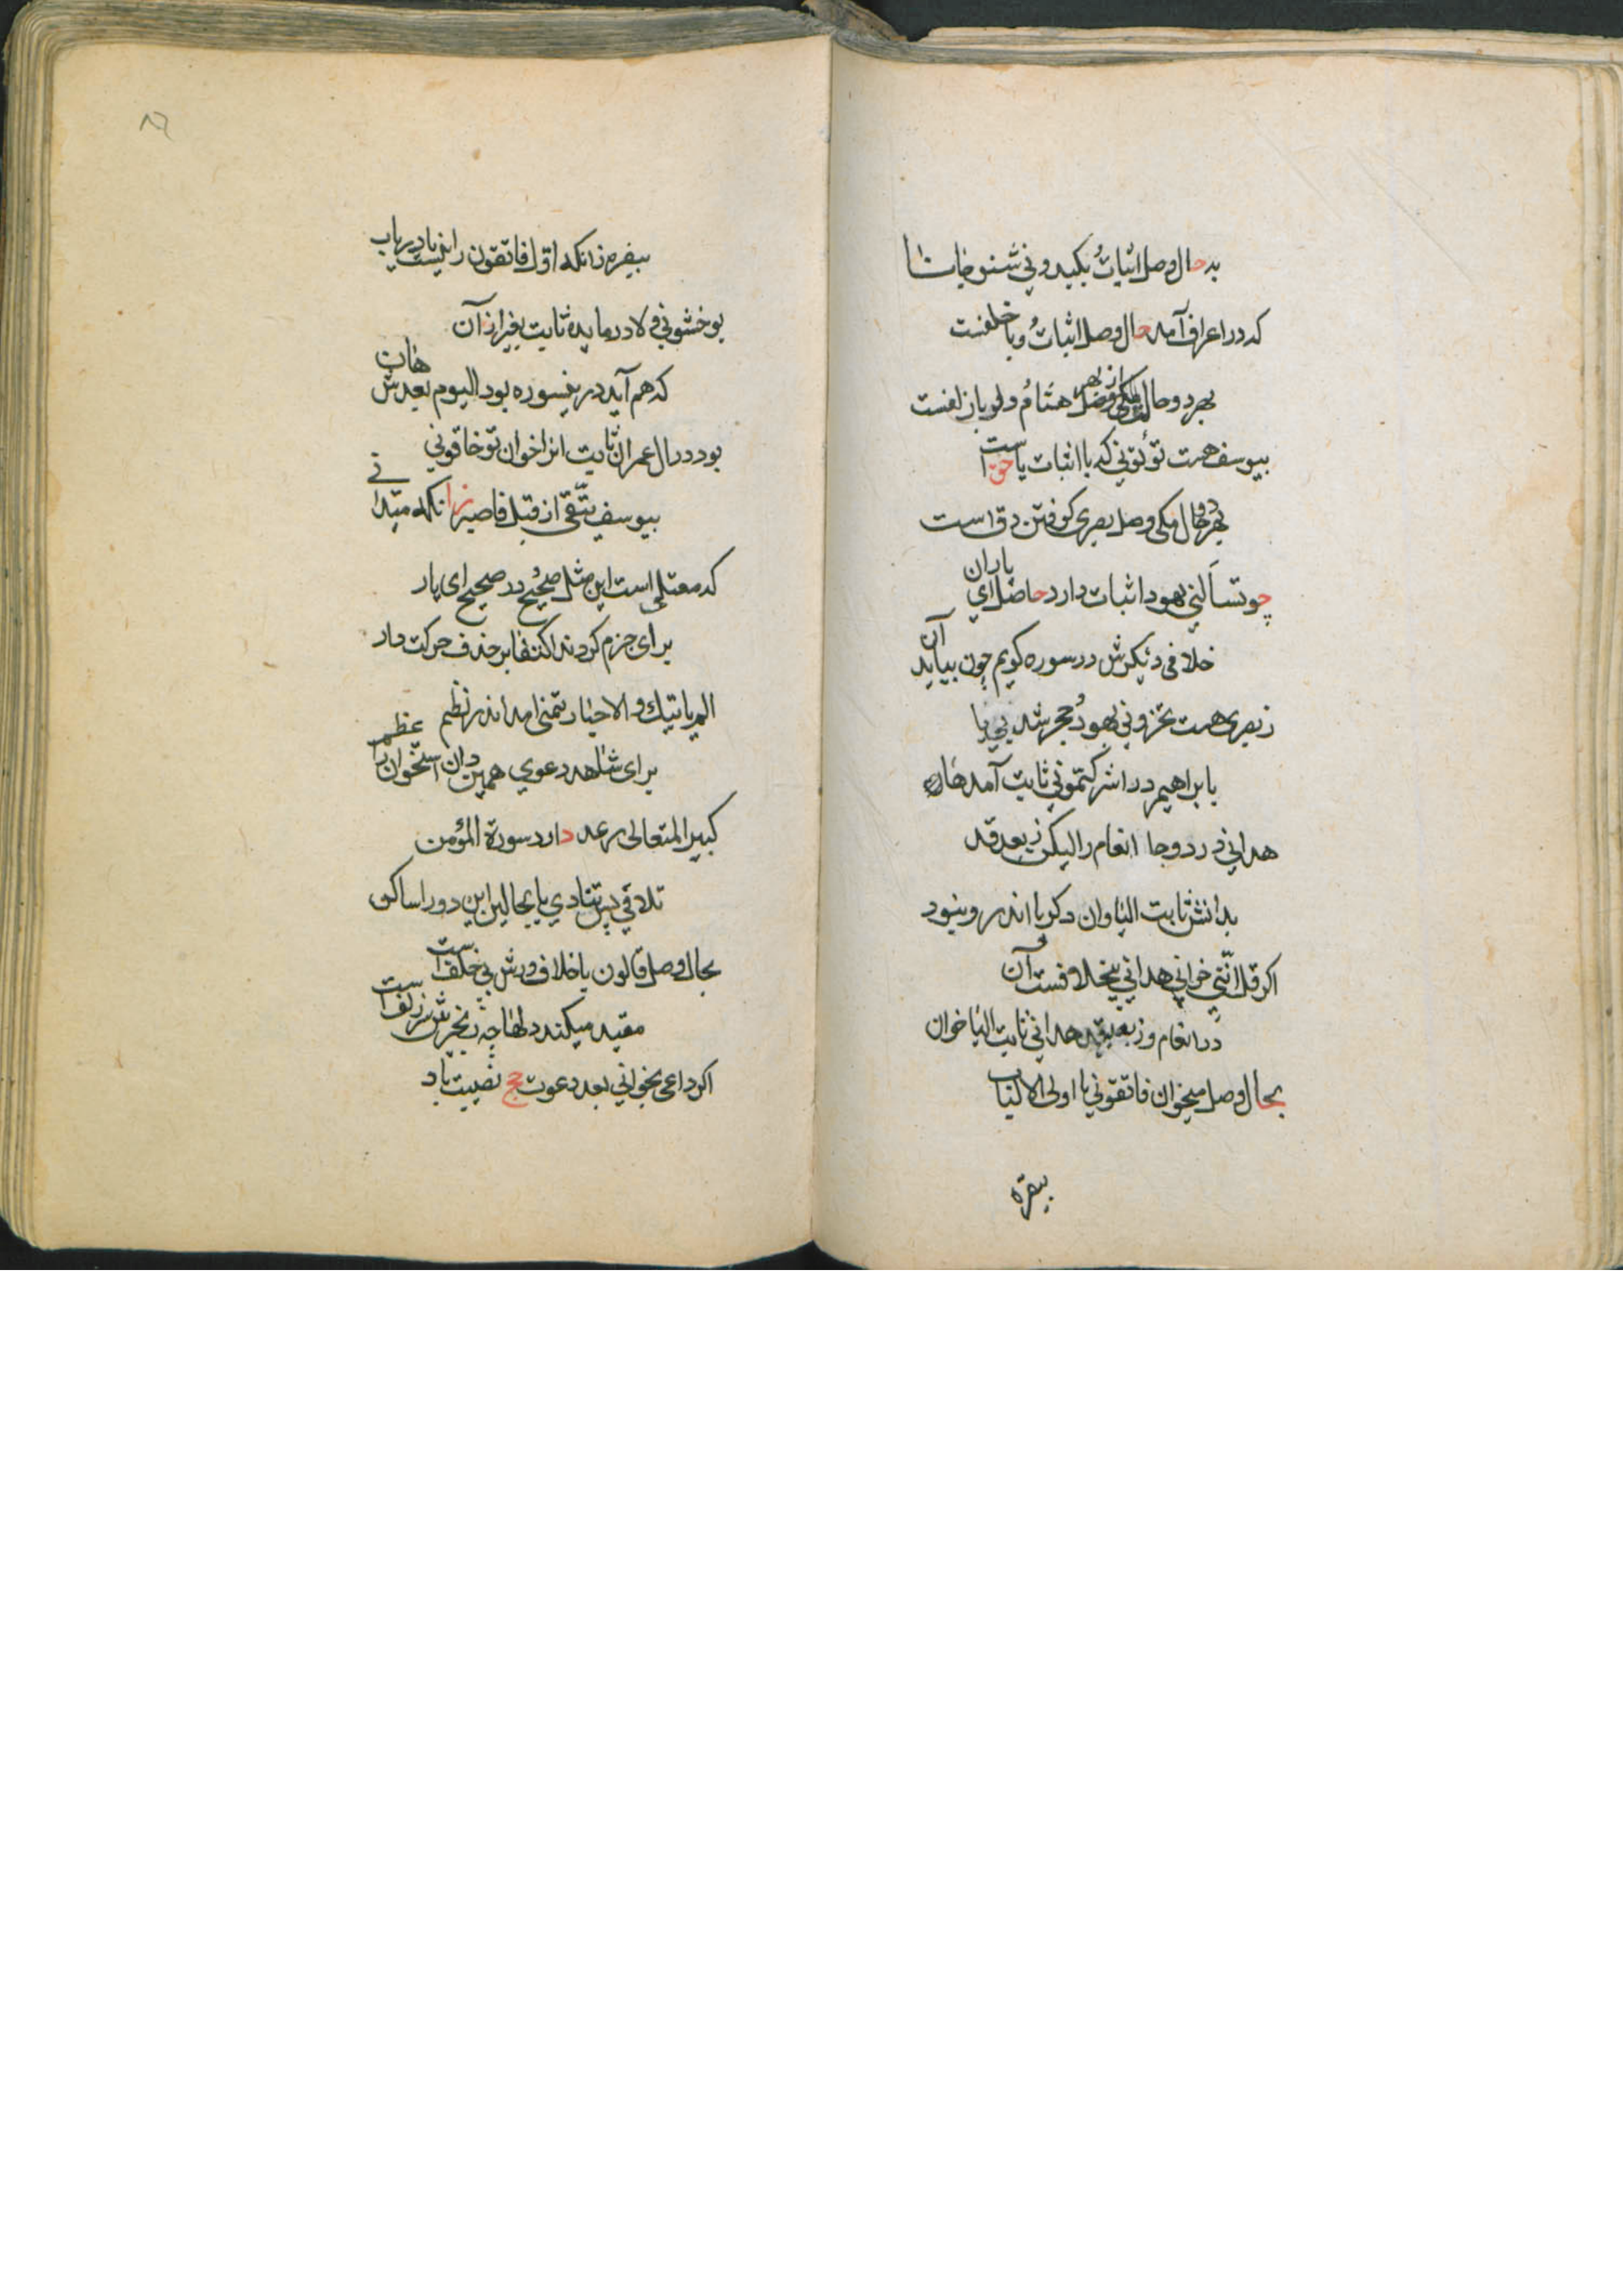 به حال وصل اثبات بکیدونی شنو جانا
که در اعراف آمد حال وصل اثبات و با خلفست
بهر دو حال مکی از بهر هشام ولو باز لفست
بیوسف هست تؤتونی که با اثبات یا حق است
بهر دو حال مکی وصل بصری کو فتن دق است
چو تسألنی بهود اثبات دارد حاصل ای یاران
خلافی دیکرش در سوره کویم چون بیاید آن
ز بصری هست تخزونی بهود حجر شد بی یا
بابراهیم در اشرکتمونی ثابت آمد هان
هدانی در دو جا انعام را لیکن ز بعد قد
بدانش ثابت الیا وان دکر یا اندرو نبود
اکر قل اننی خوانی هدانی بیخلافست آن
در انعام و ز بعد قد هدانی ثابت الیا خوان
بحال وصل میخوان فاتقونی یا اولی الالباب
ببقره
ببقره زانکه اول فاتقون را نیست یا دریاب
بوخشونی ولا در مایده ثابت بغیر از آن
که هم آید در ین سوره بود الیوم بعدش هان
بود در ال عمران ثابت انرا خوان تو خافونی
بیوسف یتقی از قبل فاصبر زانکه مبدا نی
که معتلی است این مثل صحیح در صحیح ای یار
برای جزم کردند اکتفا بر حذف حرکت دار
الم یاتیک والاخبار تنمی امد اندر نظم
برای شاهد دعوی همین دان استخوان را عظم
کبیر المتعالی رعد دارد سورة المؤمن
تلاقی پس تنادی یا بحالین این دو را ساکن
بحال وصل قالون باخلاف ورش بی خلف است
مقید میکند دلها چه زنجرش ز زلف است
اکر داعی بخوانی بعد دعوت حج نصیبت باد